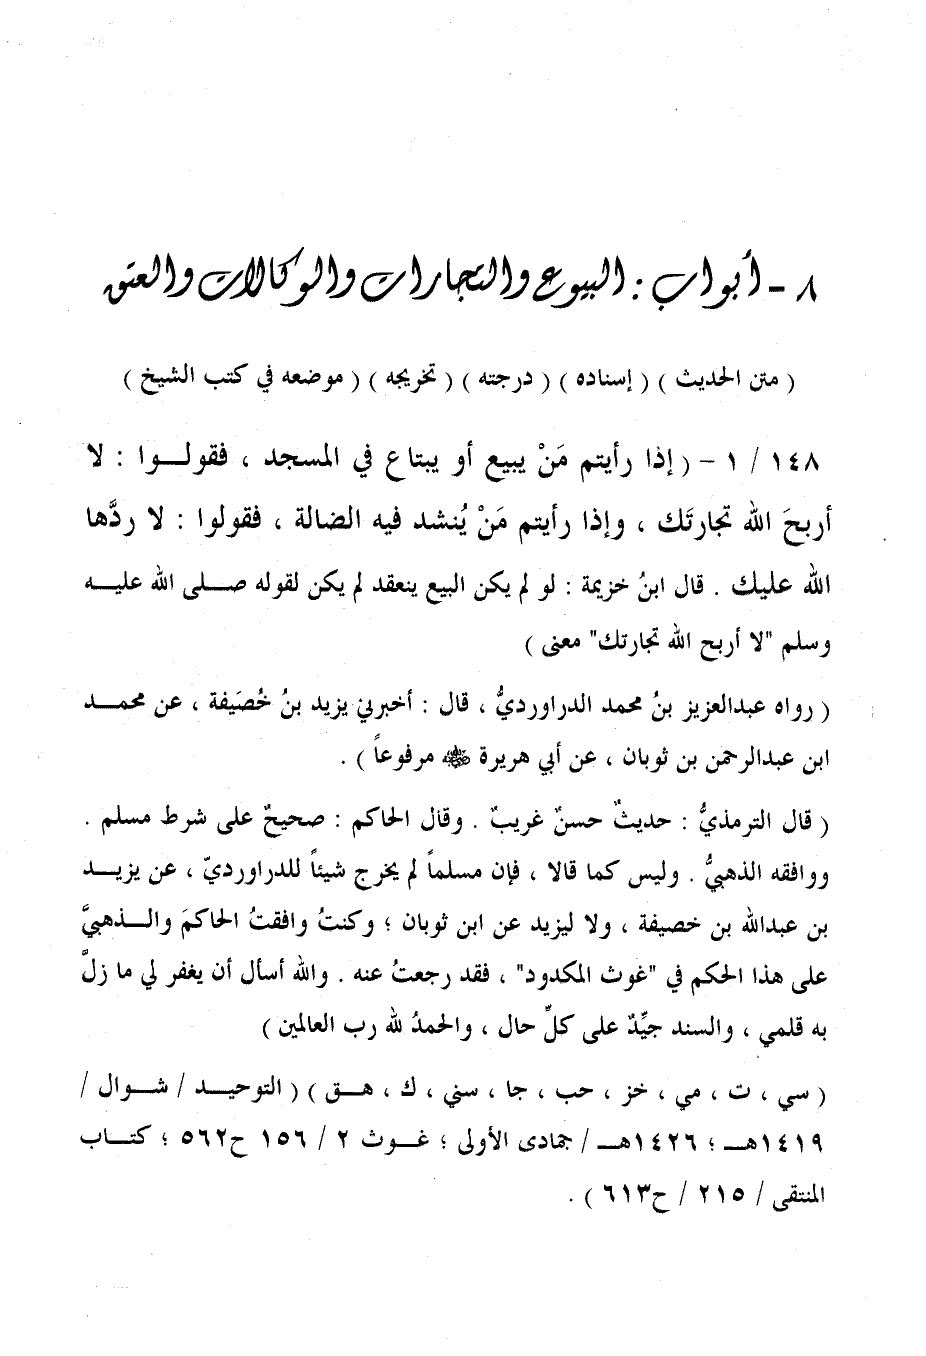 ٨ - أبواب : البيوع والتجارات والوكالات والعتق
( متن الحديث ) ( إسناده ) ( درجته ) ( تخريجه ) ( موضعه في كتب الشيخ )
١٤٨ / ١ - ( إذا رأيتم مَنْ يبيع أو يبتاع في المسجد ، فقولـوا : لا
أربحَ الله تجارتَك ، وإذا رأيتم مَنْ يُنشد فيه الضالة ، فقولوا : لا ردَّها
الله عليك . قال ابنُ خزيمة : لو لم يكن البيع ينعقد لم يكن لقوله صـلى الله عليـه
وسلم "لا أربح الله تجارتك" معنى )
( رواه عبدالعزيز بنُ محمد الدراورديُّ ، قال : أخبرني يزيد بنُ خُصَيفة ، عن محمـد
ابن عبدالرحمن بن ثوبان ، عن أبي هريرة ﷺ مرفوعاً ) .
( قال الترمذيُّ : حديثٌ حسنٌ غريبٌ . وقال الحاكم : صحيحٌ على شرط مسلم .
ووافقه الذهبيُّ . وليس كما قالا ، فإن مسلماً لم يخرج شيئاً للدراورديّ ، عن يزيـد
بن عبدالله بن خصيفة ، ولا ليزيد عن ابن ثوبان ؛ وكنتُ وافقتُ الحاكمَ والـذهبيَّ
على هذا الحكم في "غوث المكدود" ، فقد رجعتُ عنه . والله أسأل أن يغفر لي ما زلَّ
به قلمي ، والسند جيِّدٌ على كلِّ حال ، والحمدُ لله رب العالمين )
( سي ، ت ، مي ، خز ، حب ، جا ، سني ، ك ، هـق ) ( التوحيـد / شـوال /
١٤١٩هـ ؛ ١٤٢٦هـ / جمادى الأولى ؛ غـوث ٢ / ١٥٦ ح٥٦٢ ؛ كتـاب
المنتقى / ٢١٥ / ح٦١٣ ) .